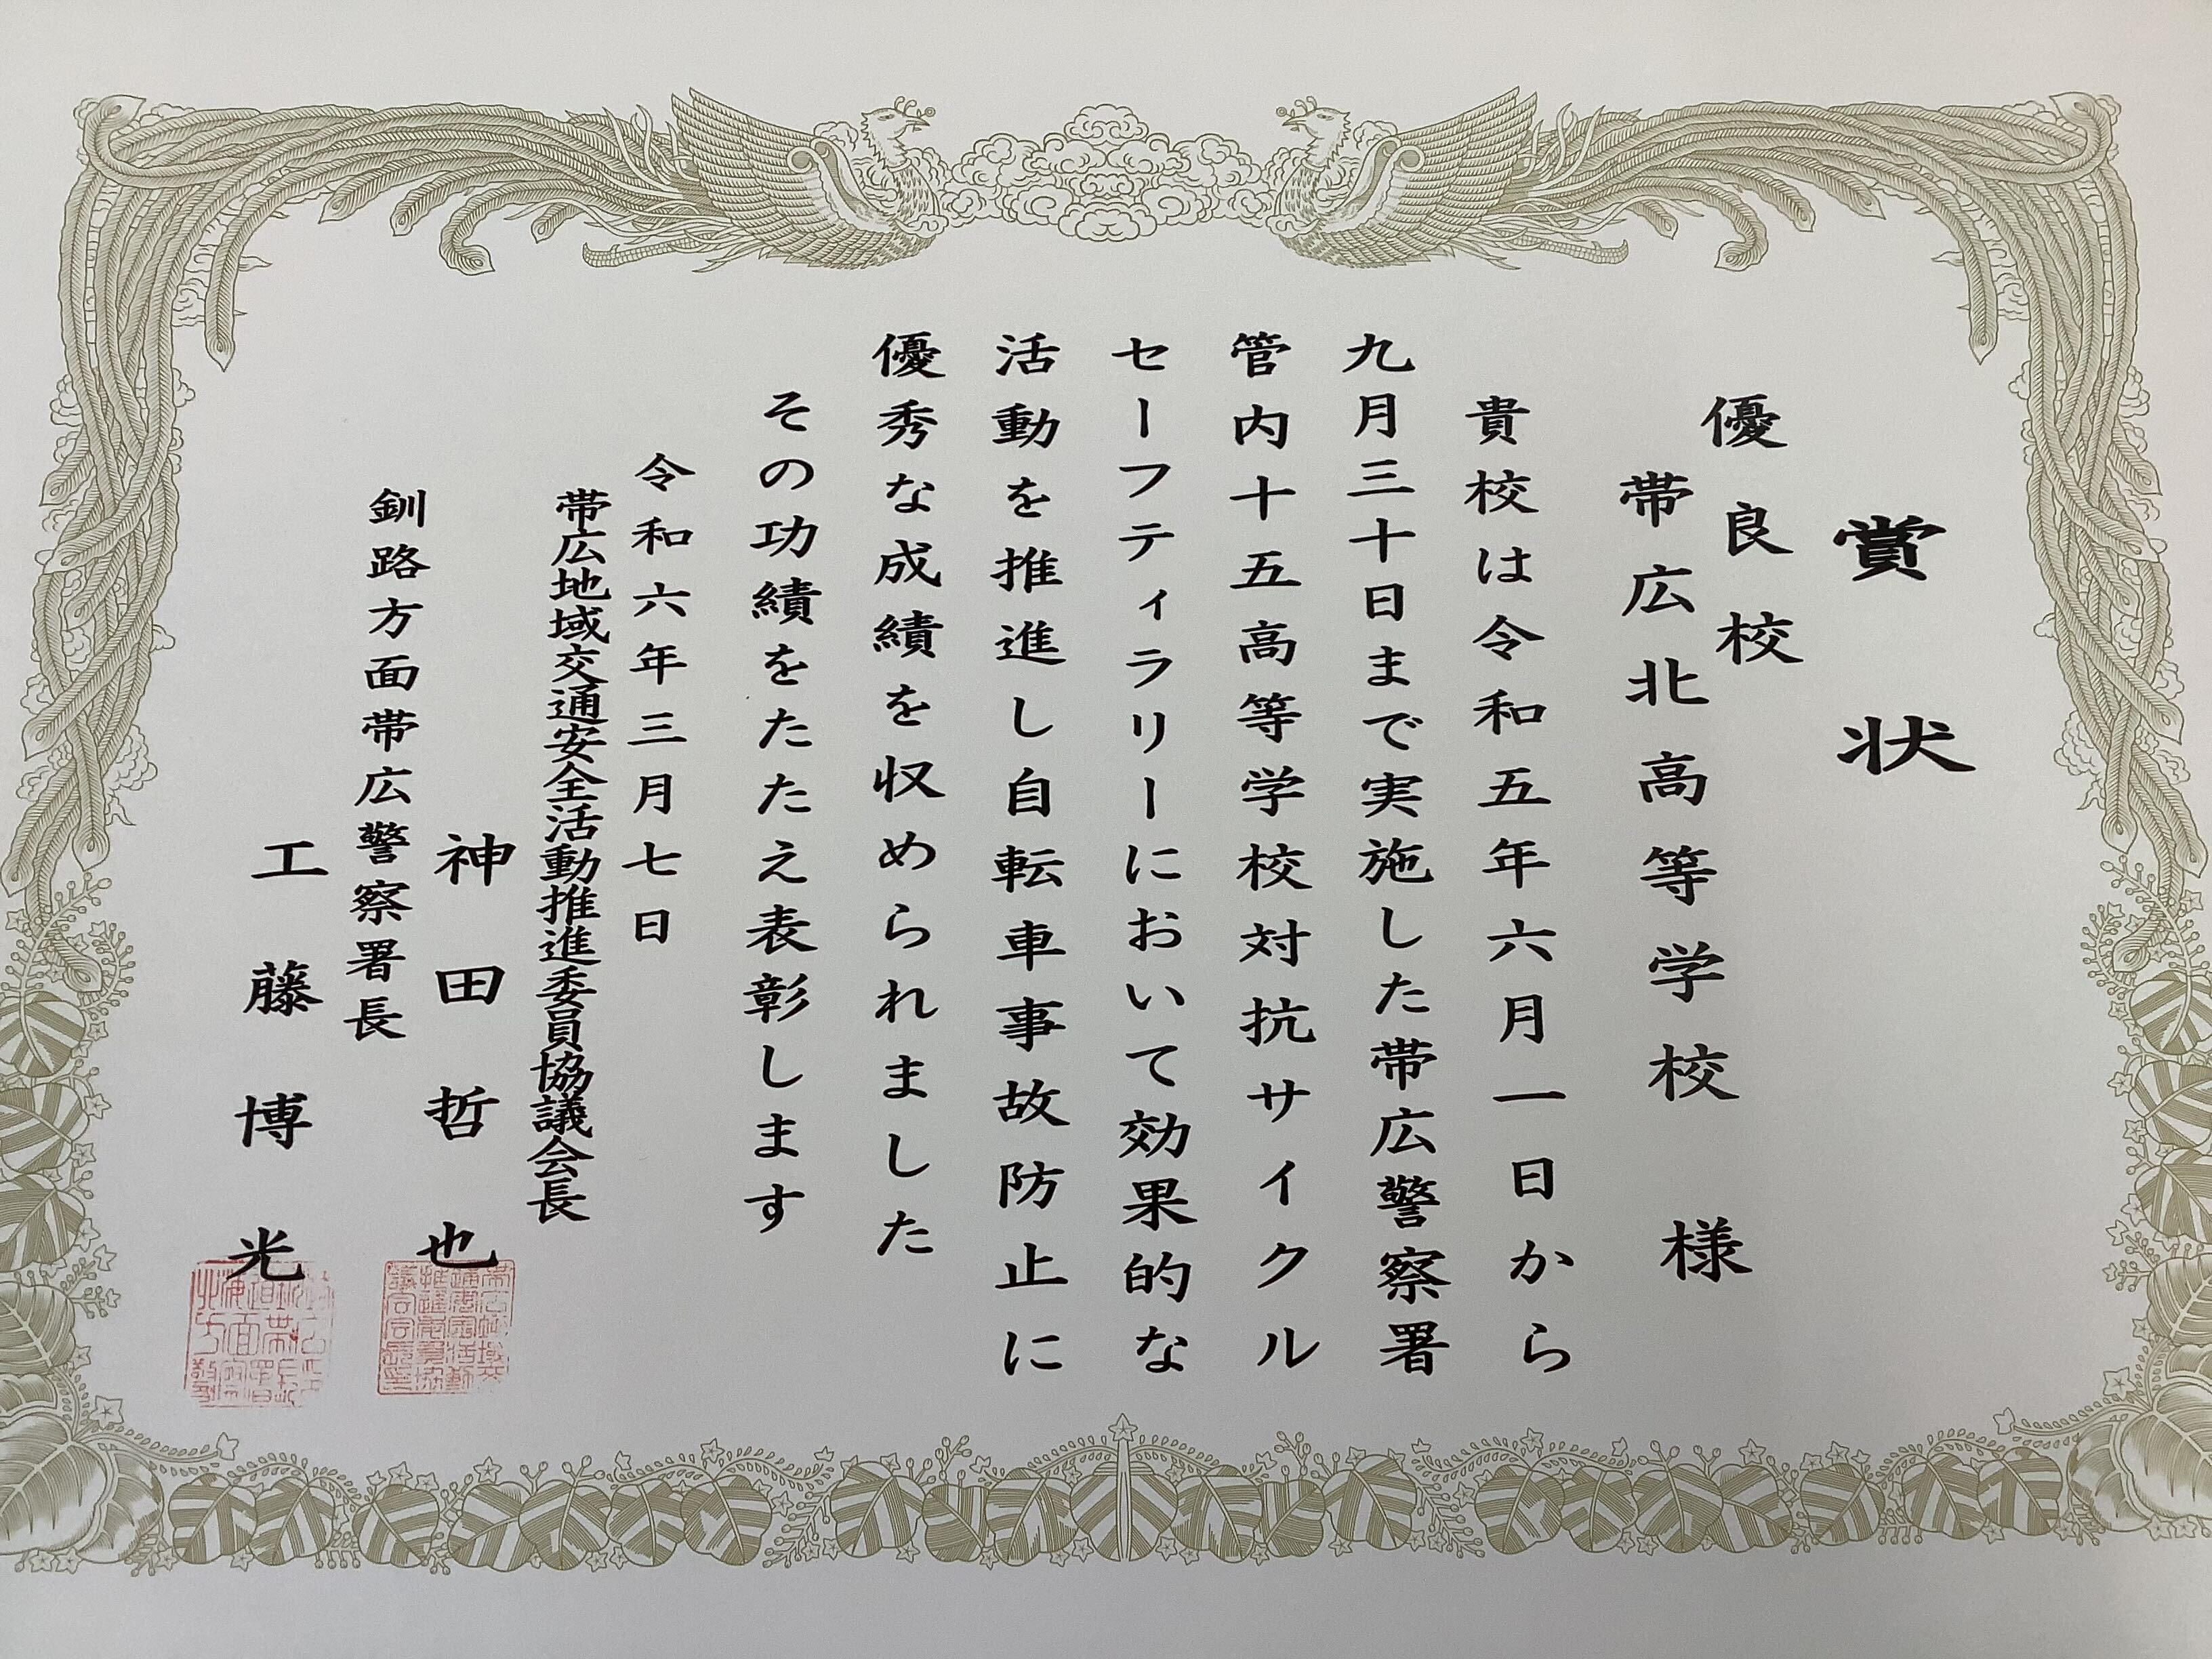 賞状
優良校
帯広北高等学校 様
貴校は令和五年六月一日から
九月三十日まで実施した帯広警察署
管内十五高等学校対抗サイクル
セーフティラリーにおいて効果的な
活動を推進し自転車事故防止に
優秀な成績を収められました
その功績をたたえ表彰します
令和六年三月七日
帯広地域交通安全活動推進委員協議会長
神田哲也
釧路方面帯広警察署長
工藤博光